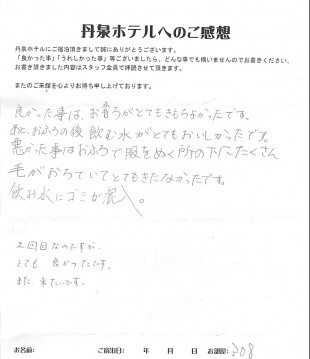 丹泉ホテルへのご感想
丹泉ホテルにご宿泊頂きまして誠にありがとうございます。
「良かった事」「うれしかった事」等ございましたら、どんな事でも構いませんのでお書きください。
お書き頂きました内容はスタッフ全員で拝読させて頂きます。
またのご来館を心よりお待ち申し上げております。
良かった事は、おふろがとてもきもちよかったです。
あと、おふろの後飲む水がとてもおいしかったです。
悪かった事はおふろで服をぬぐ所の下にたくさん
毛がおちていてとてもきたなかったです。
飲み水にゴミが混入。
2回目なのですが、
とても良かったです。
また、来たいです。
お名前: ご宿泊日: 年 月 日 お部屋: 208